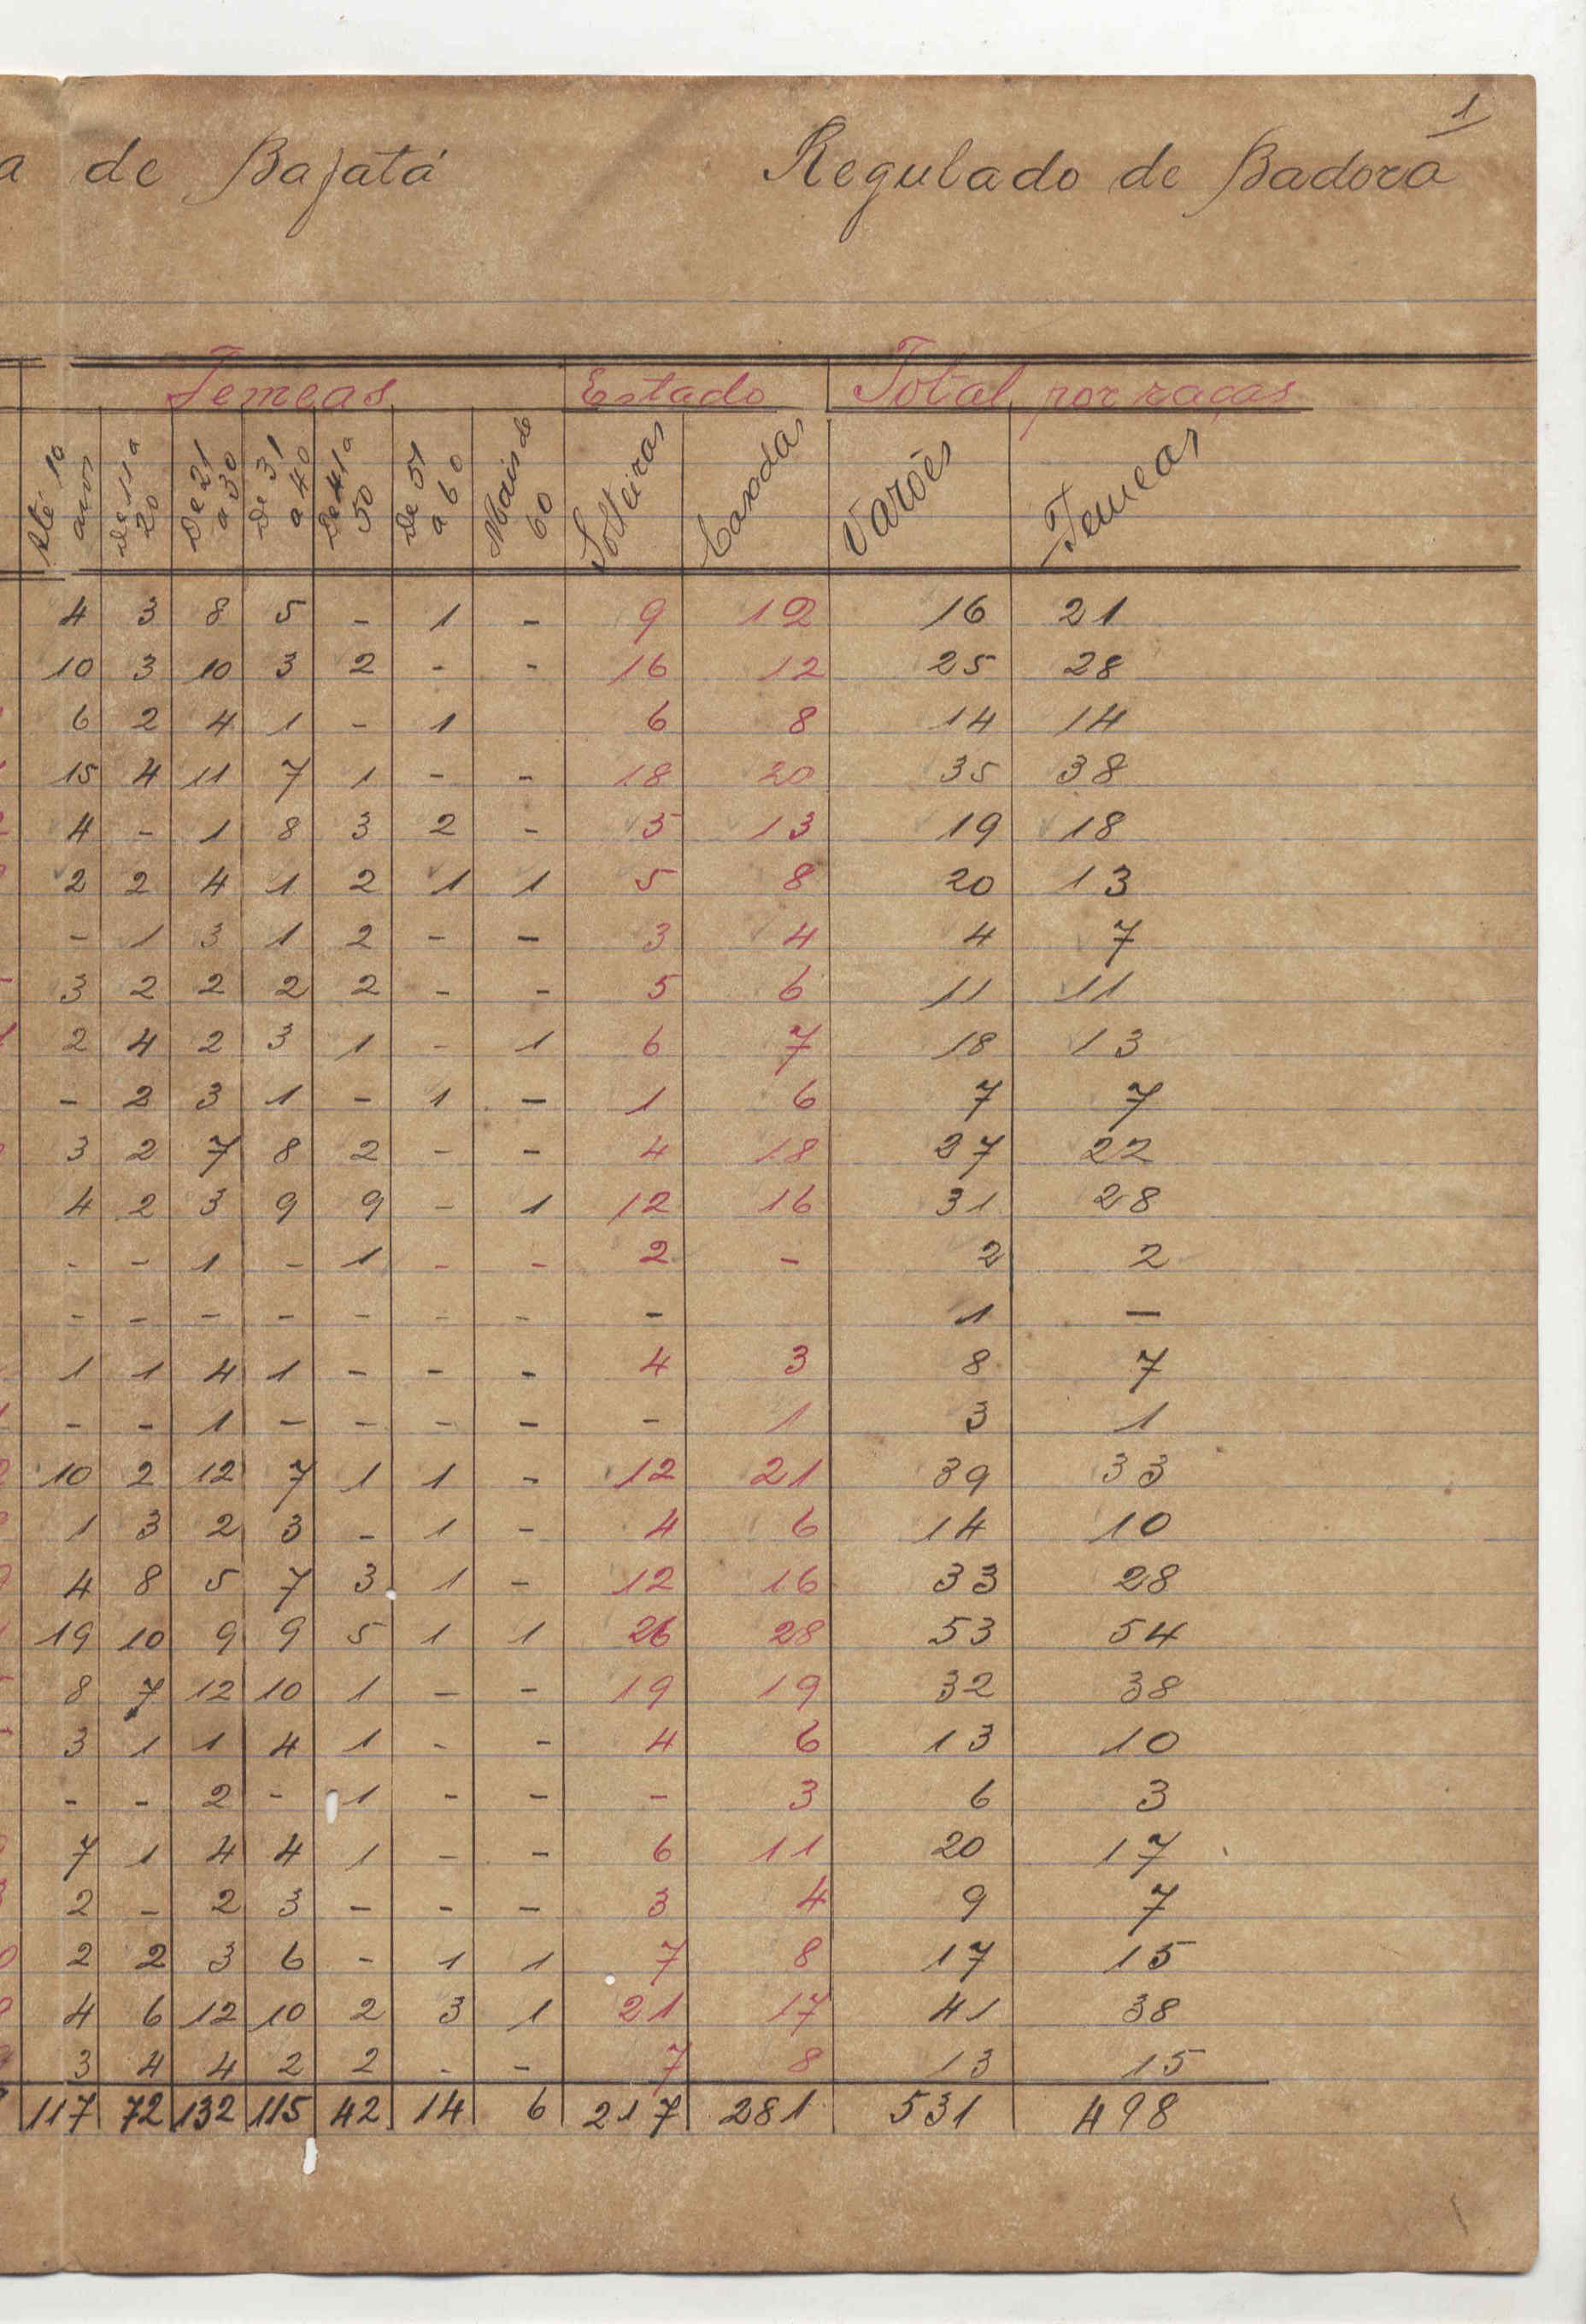 1
a de Bafatá Regulado de Badorá
Femeas Estado Total por raças
Até 10 anos De 11 a 20 De 21 a 30 De 31 a 40 De 41 a 50 De 51 a 60 Mais de 60 Solteiras Casadas Varões Femeas
4 3 8 5 - 1 - 9 12 16 21
10 3 10 3 2 - - 16 12 25 28
6 2 4 1 - 1 6 8 14 14
15 4 11 7 1 - - 18 20 35 38
4 - 1 8 3 2 - 5 13 19 18
2 2 4 1 2 1 1 5 8 20 13
- 1 3 1 2 - - 3 4 4 7
3 2 2 2 2 - - 5 6 11 11
2 4 2 3 1 - 1 6 7 18 13
- 2 3 1 - 1 - 1 6 7 7
3 2 7 8 2 - - 4 18 27 22
4 2 3 9 9 - 1 12 16 31 28
- - 1 - 1 - - 2 - 2 2
- - - - - - - - 1 -
1 1 4 1 - - - 4 3 8 7
- - 1 - - - - - 1 3 1
10 2 12 7 1 1 - 12 21 39 33
1 3 2 3 - 1 - 4 6 14 10
4 8 5 7 3 1 - 12 16 33 28
19 10 9 9 5 1 1 26 28 53 54
8 7 12 10 1 - - 19 19 32 38
3 1 1 4 1 - - 4 6 13 10
- - 2 - 1 - - - 3 6 3
7 1 4 4 1 - - 6 11 20 17
2 - 2 3 - - - 3 4 9 7
2 2 3 6 - 1 1 7 8 17 15
4 6 12 10 2 3 1 21 17 41 38
3 4 4 2 2 - - 7 8 13 15
117 72 132 115 42 14 6 217 281 531 498